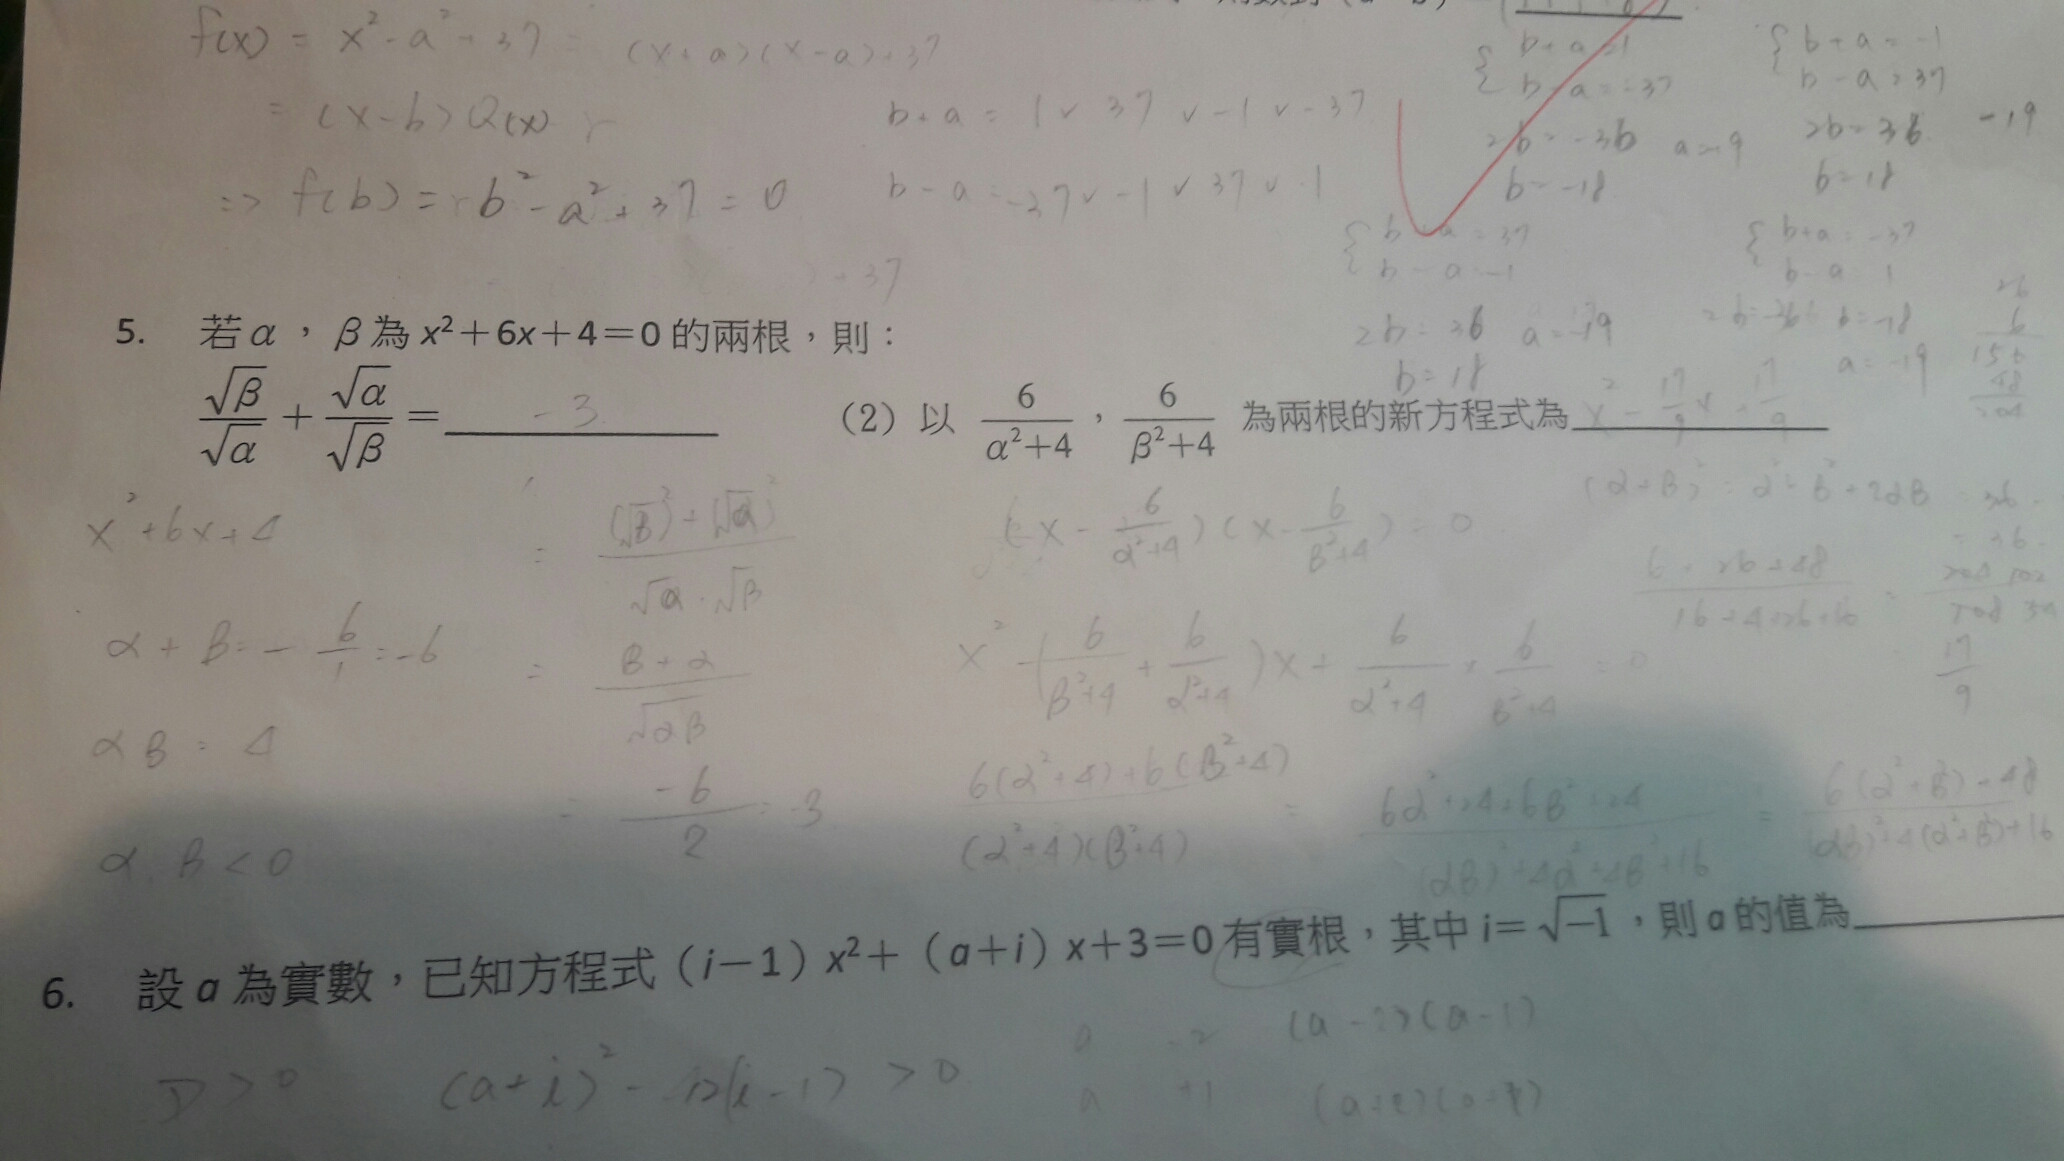 f(x) = x²-a²+37 = (x+a)(x-a)+37
= (x-b)Q(x)
b+a = 1 ∨ 37 ∨ -1 ∨ -37
b-a = -37 ∨ -1 ∨ 37 ∨ 1
=> f(b) = b²-a²+37 = 0
{ b+a = 1
b-a = -37
2b = -36
b = -18
{ b+a = -1
b-a = 37
2b = 36 -19
b = 18
{ b+a = 37
b-a = -1
2b = 36 a = 19
b = 18
{ b+a = -37
b-a = 1
b = -18
a = -19
5. 若α,β為x²+6x+4=0的兩根,則:
√β/√α + √α/√β = -3 (2)以 6/(α²+4) , 6/(β²+4) 為兩根的新方程式為 x² - 17/9 x + 17/9
x²+6x+4
α+β = -6/1 = -6
αβ = 4
α, β < 0
= ((√β)²+(√α)²)/(√α·√β)
= (β+α)/√αβ
= -6/2 = -3
(x - 6/(α²+4))(x - 6/(β²+4)) = 0
x² - (6/(β²+4) + 6/(α²+4))x + 6/(α²+4) × 6/(β²+4) = 0
(6(α²+4)+6(β²+4))/((α²+4)(β²+4)) = (6α²+24+6β²+24)/((αβ)²+4α²+4β²+16) = (6(α²+β²)+48)/((αβ)²+4(α²+β²)+16)
17/9
6. 設a為實數,已知方程式(i-1)x²+(a+i)x+3=0有實根,其中i=√-1,則a的值為
D>0 (a+i)²-12(i-1) >0
(a-2)(a-1)